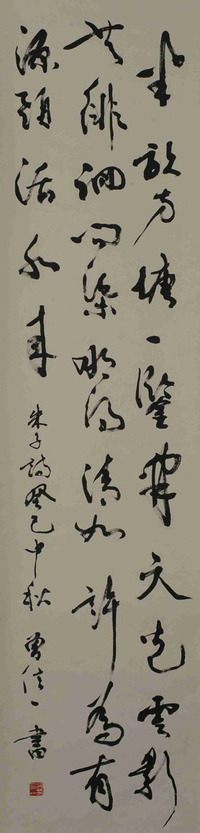 半畝方塘一鑒開天光雲影
共徘徊問渠那得清如許為有
源頭活水來
朱子詩癸巳中秋曾信一書